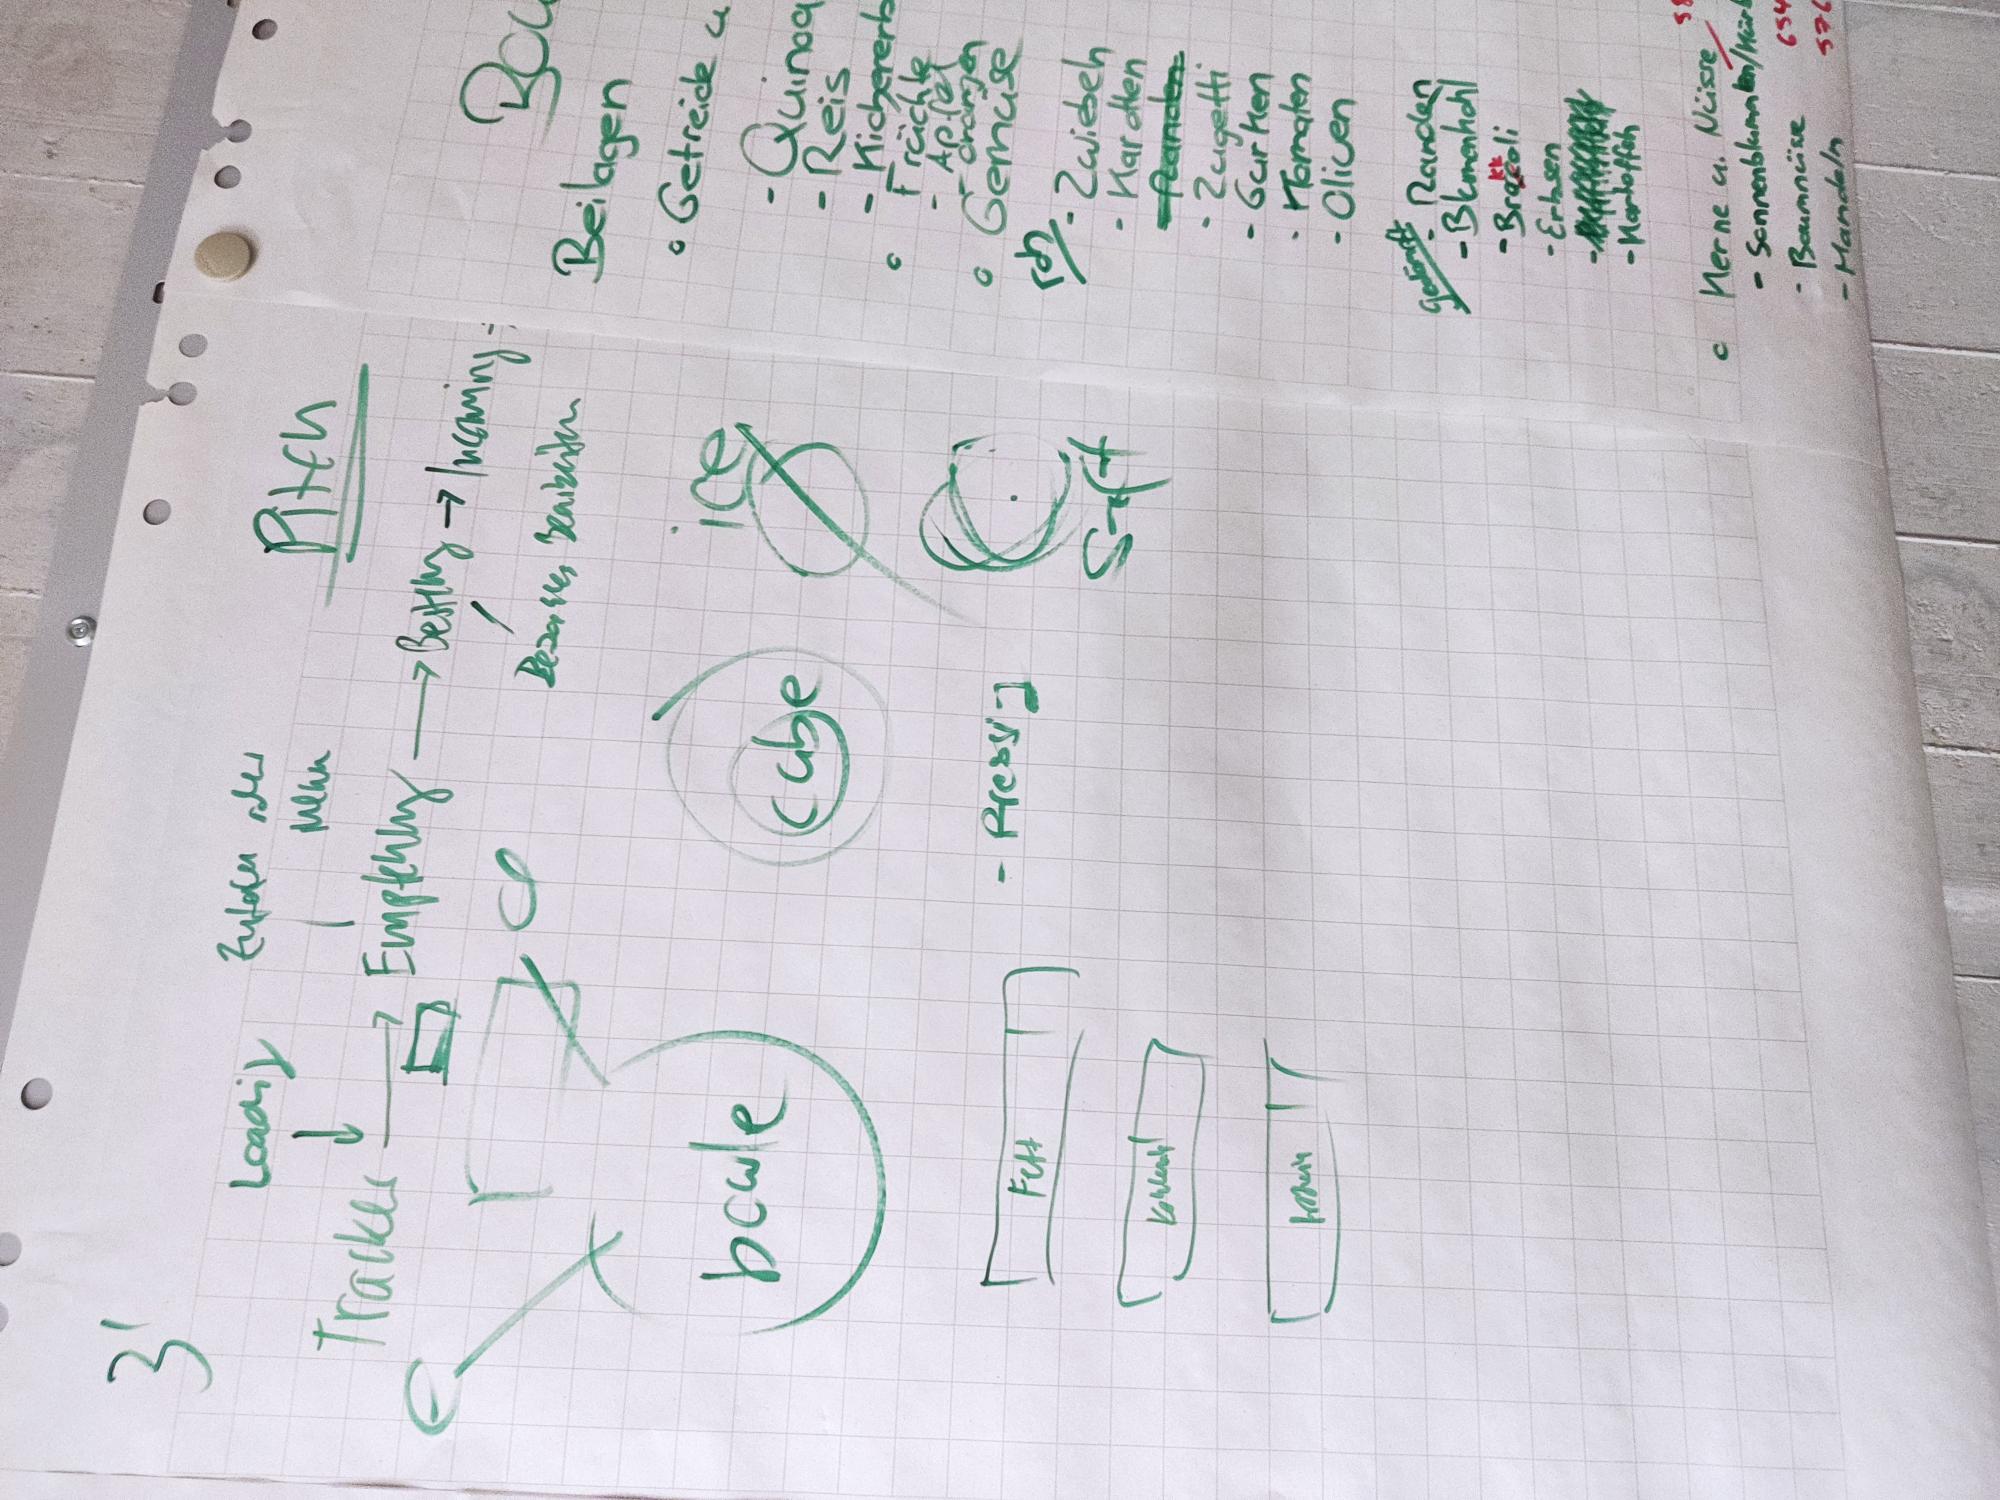 3'
Loading
Zutaten oder
Menu
Pitch
Tracker → Empfehlung → Bestellung → Incoming
Bearbeiten
bowle
cube
ice
Fett
- Pressing
Saft
Kohlenh
Protein
Beilagen
Getreide u.
- Quinoa
- Reis
- Kichererb
Früchte
- Apfel
- orangen
Gemüse
roh
- Zwiebeln
- Karotten
- Randen
- Zugetti
- Gurken
- Tomaten
- Oliven
gedämpft
- Randen
- Blumenkohl
- Brokkoli
- Erbsen
- Kartoffeln
Kerne u. Nüsse
- Sonnenblumen/Kürb
- Baumnüsse 654
- Mandeln 576